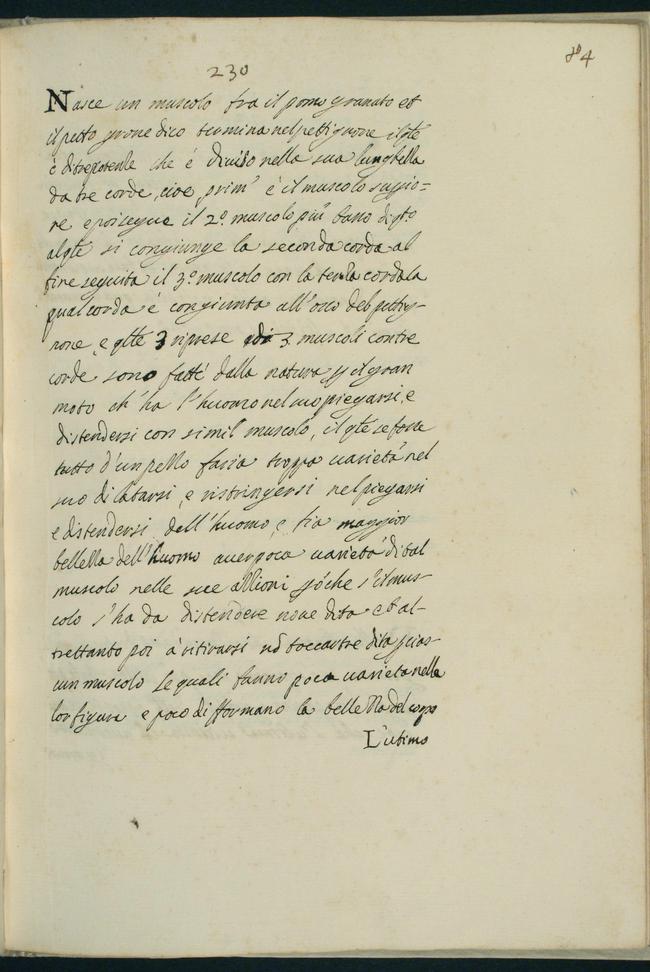 230
84
Nasce un muscolo fra il pomo granato et
il petto gnone dico termina nel pettignone il qle
è di tre potentie che è diviso nella sua lunghezza
da tre corde, cioe prim' è il muscolo supio=
re e poi segue il 2º. muscolo piu basso di qto
al qle si congiunge la seconda corda al
fine seguita il 3º muscolo con la terza corda la
qual corda è congiunta all'osso del petty-
none, e qlle 3 riprese di 3 muscoli con tre
corde sono fatte dalla natura p il gran
moto ch'ha l'huomo nel suo piegarsi, e
distendersi con simil muscolo, il qle se fosse
tutto d'un pezzo faria troppa varietà nel
suo dilatarsi, e ristringersi nel piegarsi
e distendersi dell'huomo, e fia maggior
bellezza dell'huomo aver poca varietà di tal
muscolo nelle sue attioni pche s'il mus-
colo s'ha da distendere nove dita et al-
trettanto poi à ritirarsi nō tocca tre dita p cias-
cun muscolo le quali fanno poca varietà nella
lor figura e poco difformano la bellezza del corpo
L'ultimo